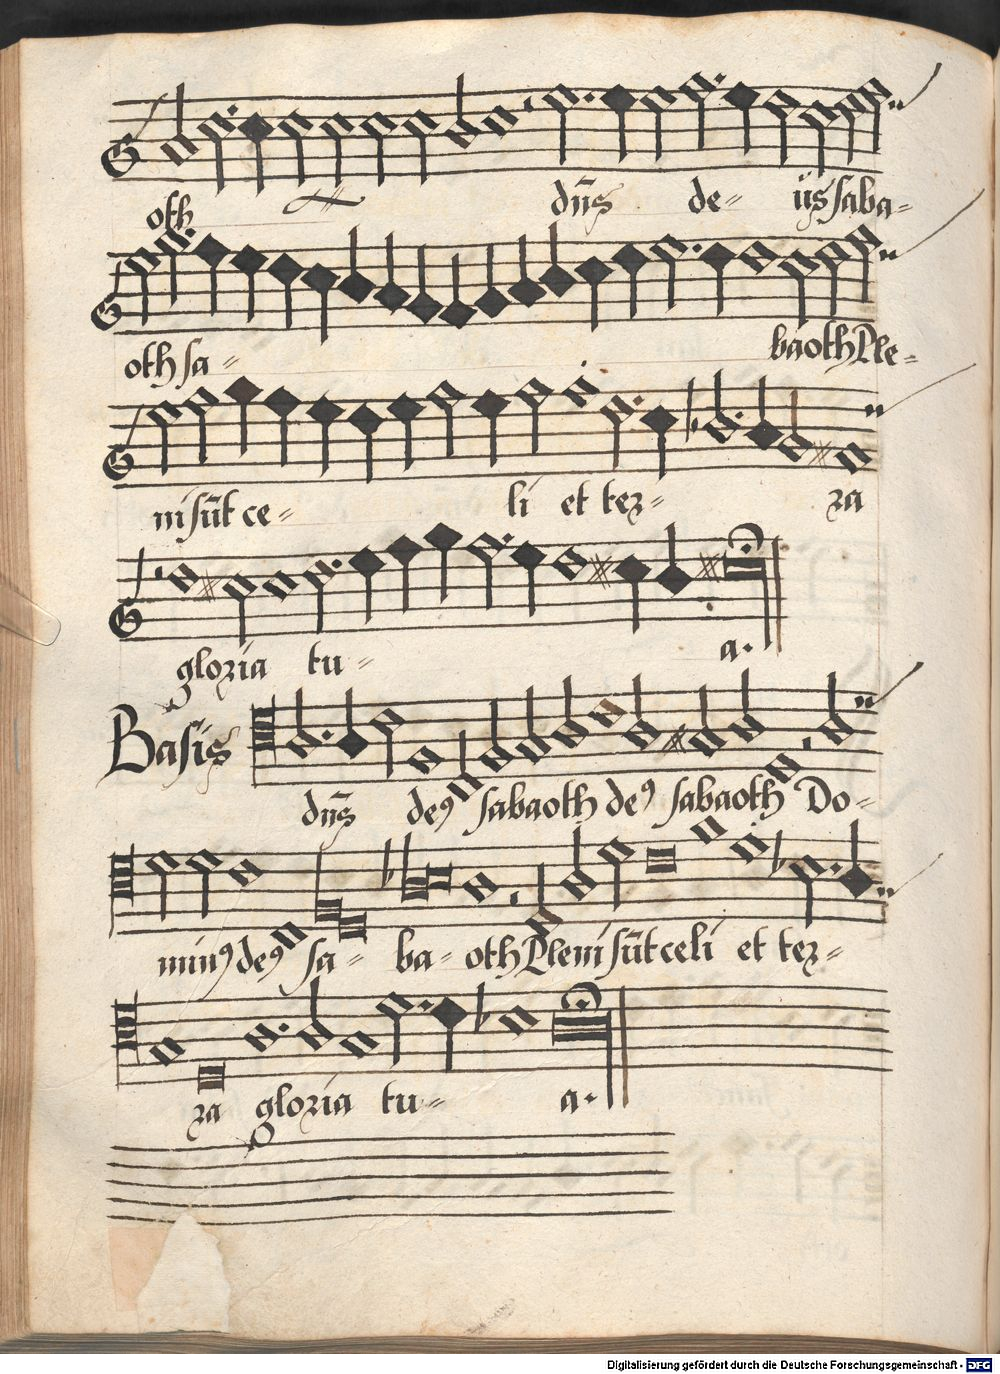 oth dñs de= us saba=
oth sa= baoth Ple=
ni sūt ce= li et ter= ra
gloria tu= a.
Basis
dñs deꝰ sabaoth deꝰ sabaoth Do=
minꝰ deꝰ sa= ba= oth Pleni sūt celi et ter=
ra gloria tu= a.
Digitalisierung gefördert durch die Deutsche Forschungsgemeinschaft - DFG